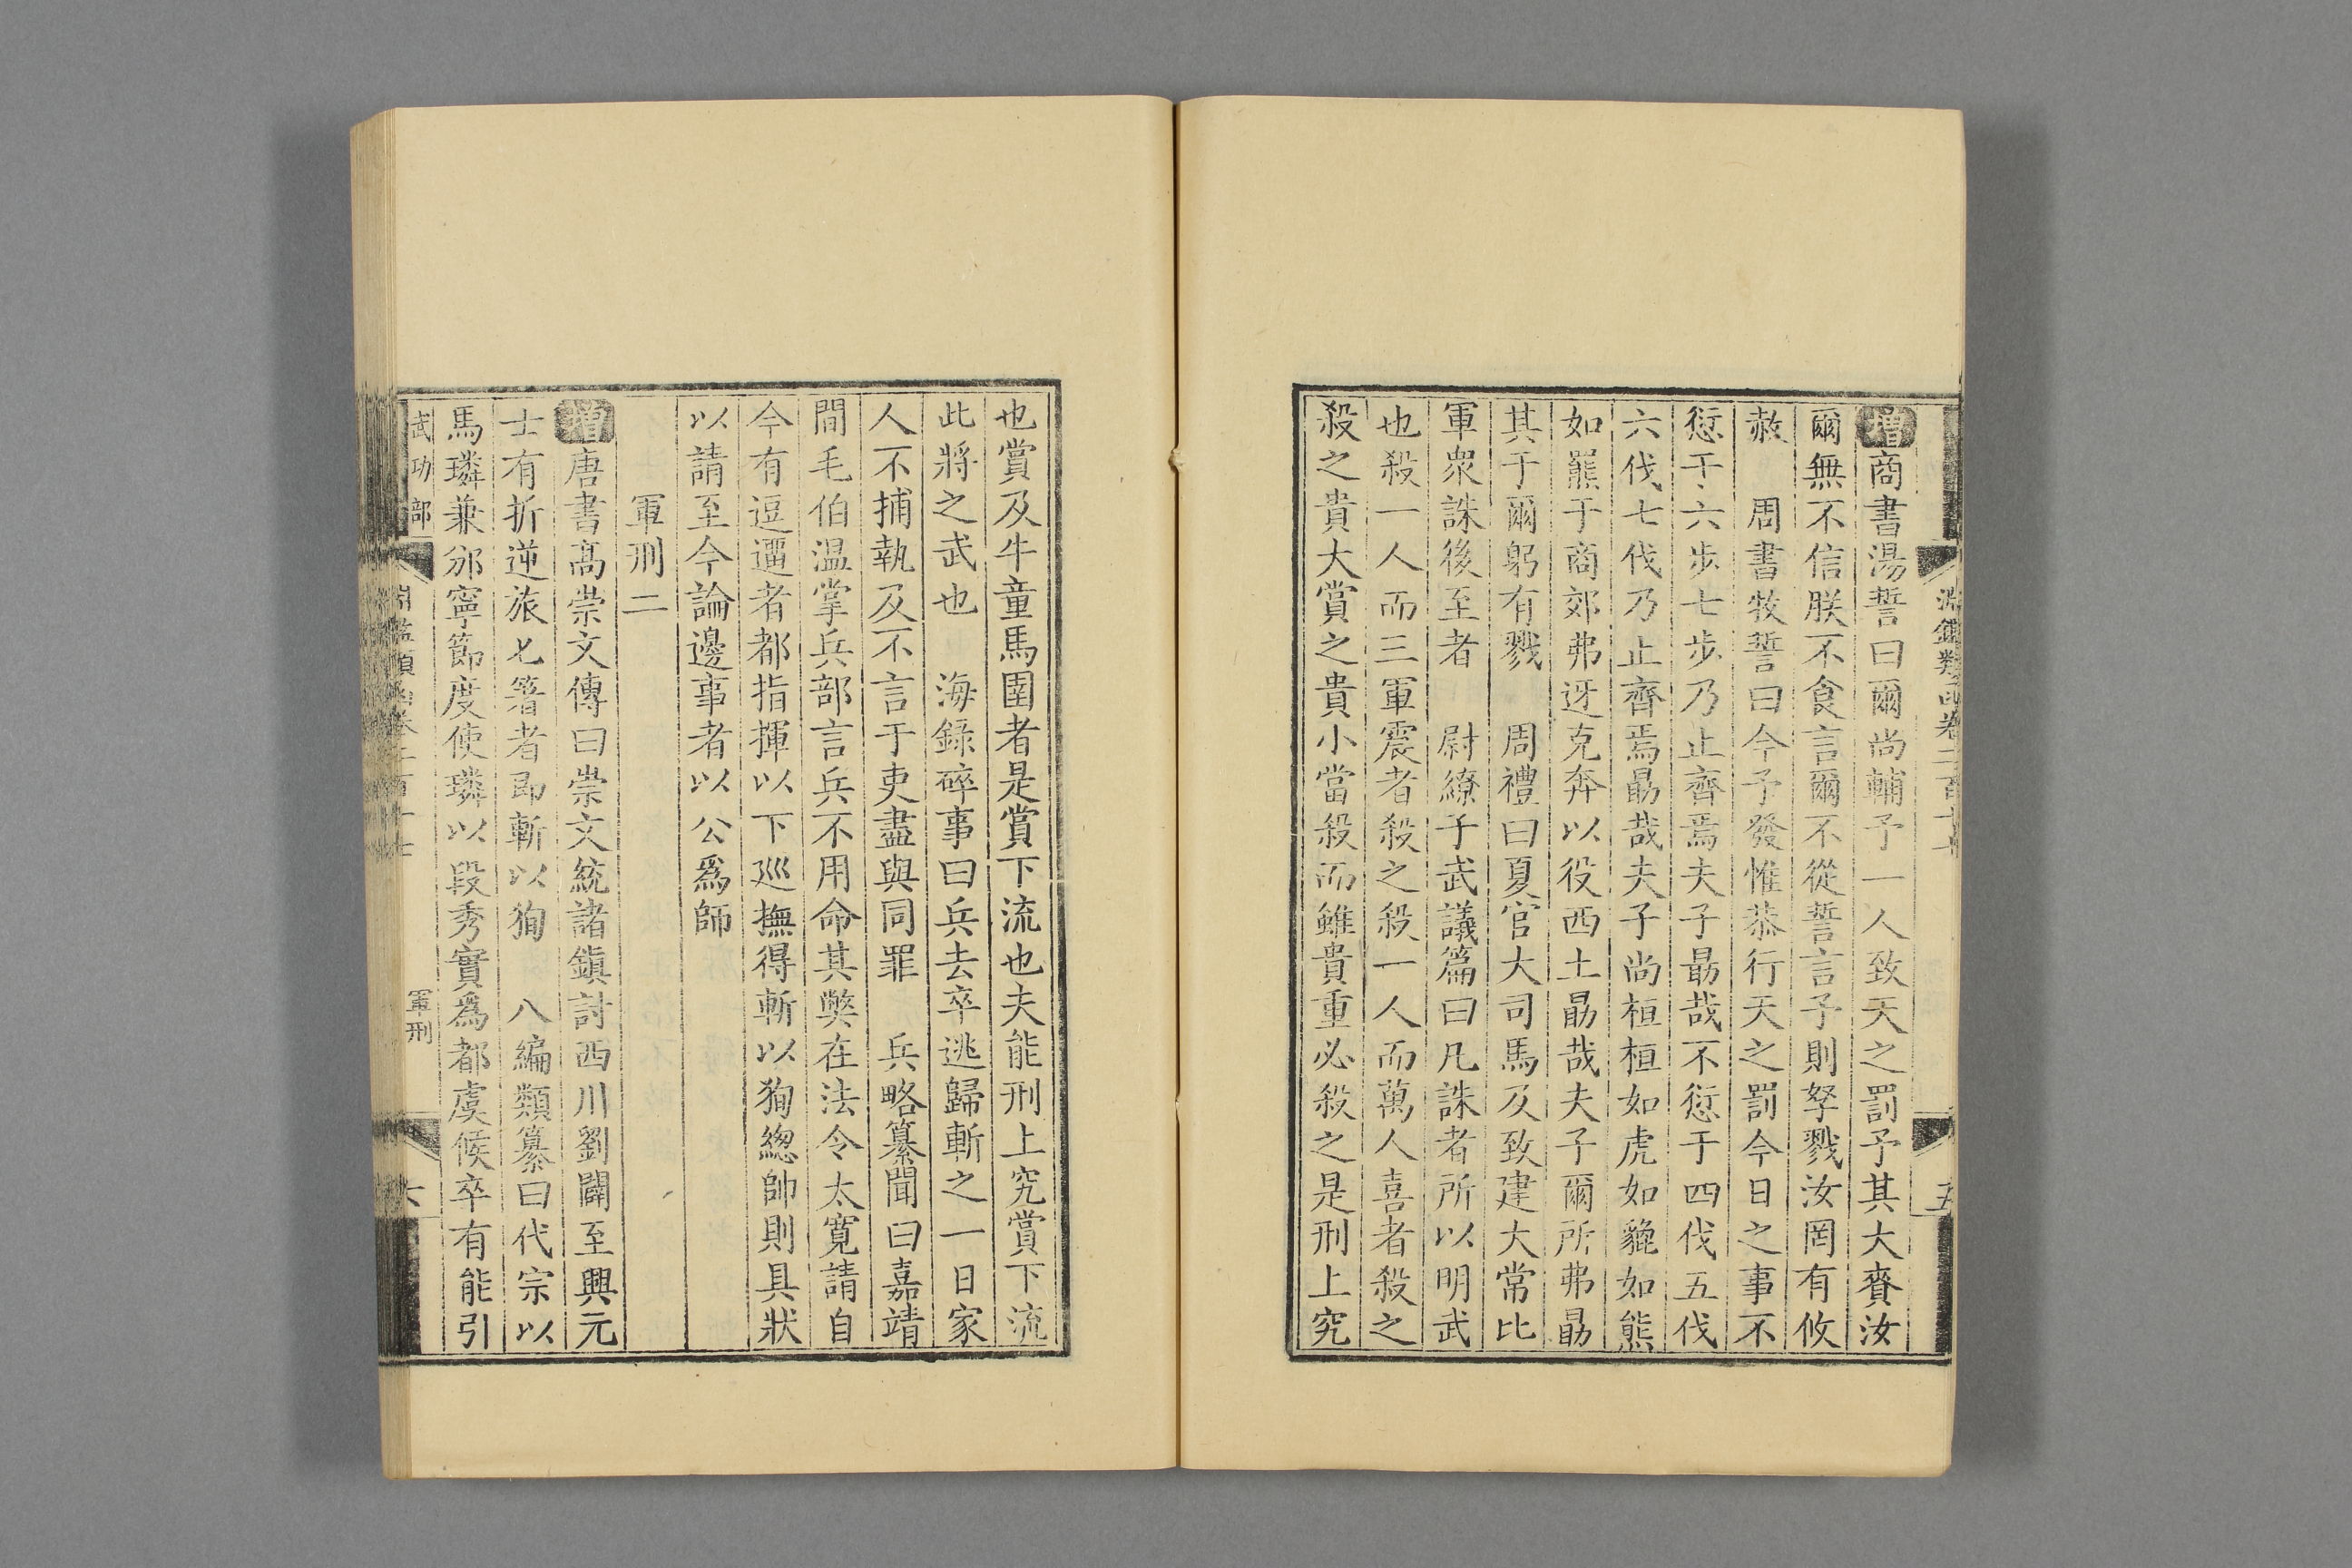 增商書湯誓曰爾尚輔予一人致天之罰予其大賚汝
爾無不信朕不食言爾不從誓言予則孥戮汝罔有攸
赦　周書牧誓曰今予發惟恭行天之罰今日之事不
愆于六步七步乃止齊焉夫子勗哉不愆于四伐五伐
六伐七伐乃止齊焉勗哉夫子尚桓桓如虎如貔如熊
如羆于商郊弗迓克奔以役西土勗哉夫子爾所弗勗
其于爾躬有戮　周禮曰夏官大司馬及致建大常比
軍衆誅後至者　尉繚子武議篇曰凡誅者所以明武
也殺一人而三軍震者殺之殺一人而萬人喜者殺之
殺之貴大賞之貴小當殺而雖貴重必殺之是刑上究
也賞及牛童馬圉者是賞下流也夫能刑上究賞下流
此將之武也　海錄碎事曰兵去卒逃歸斬之一日家
人不捕執及不言于吏盡與同罪　兵略纂聞曰嘉靖
間毛伯温掌兵部言兵不用命其弊在法令太寬請自
今有逗遛者都指揮以下巡撫得斬以狥總帥則具狀
以請至今論邊事者以公爲師
軍刑二
增唐書高崇文傳曰崇文統諸鎭討西川劉闢至興元
士有折逆旅匕箸者即斬以狥　八編類纂曰代宗以
馬璘兼邠寧節度使璘以段秀實爲都虞候卒有能引
武功部
淵鑑類函卷二百十七
軍刑
六